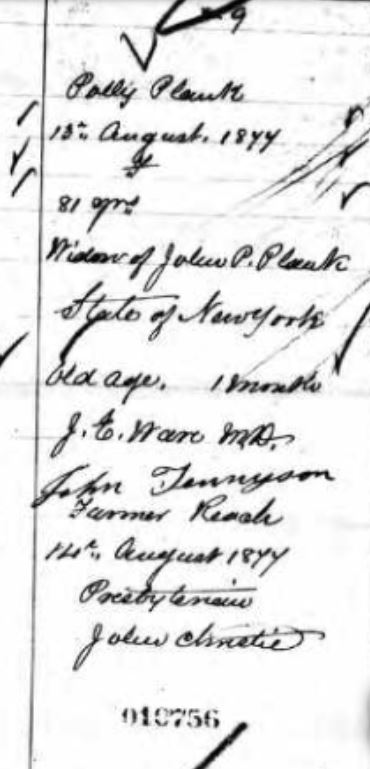 9
Polly Plank
13th August. 1877
F
81 yrs
Widow of John P. Plank
State of New York
Old age. 1 month
J. E. Ware M.D.
John Tennyson
Farmer Reach
14th August 1877
Presbyterian
John Christie
010756